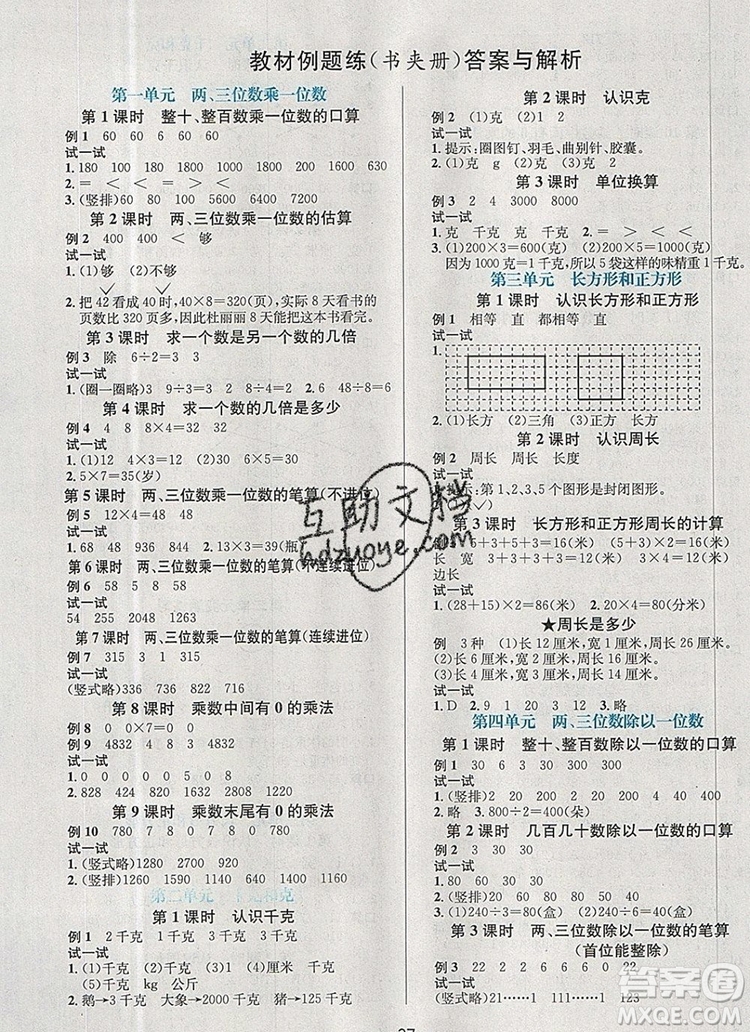 教材例题练(书夹册)答案与解析
第一单元 两、三位数乘一位数
第1课时 整十、整百数乘一位数的口算
例1 60 60 6 60 60
试一试
1. 180 160 1800 1000 1200 1600 630
2. = < = <
3. (竖排)60 240 3500 6400 7200
第2课时 两、三位数乘一位数的估算
例2 400 400 < 够
试一试
1. (1)够 (2)不够
2. 把42看成40时,40×8=320(页),实际8天读书的
页数比320页多,因此杜丽丽的这本书看完。
第3课时 求一个数是另一个数的几倍
例3 除 6÷2=3 3
试一试
1. (圈一圈略)3 9÷3=3 3 2. 8 6 48÷8=6
第4课时 求一个数的几倍是多少
例4 4 8 8×4=32 32
试一试
1. (1)12 4×3=12 (2)30 6×5=30
2. 5×7=35(岁)
第5课时 两、三位数乘一位数的笔算(不进位)
例5 12×4=48 48
试一试
1. 68 48 909 844 2. 13×3=39(瓶)
第6课时 两、三位数乘一位数的笔算(不连续进位)
例6 58 5 8 58
试一试
54 255 2048 1263
第7课时 两、三位数乘一位数的笔算(连续进位)
例7 315 3 1 315
试一试
(竖式略)340 315 1336 2220
第8课时 乘数中间有0的乘法
例8 0 0×7=0 0
例9 4832 4 8 4832
试一试
1. 0 0 0 0 5 0 0 8
2. (竖排)820 436 1827 2505 1280 4832
第9课时 乘数末尾有0的乘法
例10 780 7 8 0 780
试一试
1. (竖式略)1280 1120 2970
2. (竖排)1260 1590 1140 640 1350 1440
第二单元 千克和克
第1课时 认识千克
例1 2千克 3千克 3千克 3千克
试一试
1. (1)千克 (2)千克 (3)1千克 (4)千克
(5)千克 kg 公斤
2. 鹅→3千克 大象→2000千克 猪→125千克
第2课时 认识克
例2 (1)克 (2)1 2
试一试
1. 提示:圈图钉、羽毛、曲别针、胶囊。
2. (1)克 g (2)克 (3)克
第3课时 单位换算
例3 2 4 3000 8000
试一试
1. 克 千克 克 千克 2. = < > <
3. (1)200×3=600(克) (2)200×5=1000(克)
因为1000克=1千克,所以5袋这样的味精重1千克。
第三单元 长方形和正方形
第1课时 认识长方形和正方形
例1 相等 直 都相等 直
试一试
1.
2. (1)长方 (2)三角 (3)正方 长方
第2课时 认识周长
例2 周长 周长 长度
试一试
提示:第1、2、3、5个图形是封闭图形。
第3课时 长方形和正方形周长的计算
试一试
1. (28+15)×2=86(米) 2. 20×4=80(分米)
★周长是多少
例 3种 (1)长12厘米,宽1厘米,周长26厘米。
(2)长6厘米,宽2厘米,周长16厘米。
试一试
1. D 2. 9厘米 30厘米 3. 略
第四单元 两、三位数除以一位数
第1课时 整十、整百数除以一位数的口算
例1 3 30 6 30 300 300
试一试
2. = < > < 3. 800÷2=400(朵)
第2课时 几百几十数除以一位数的口算
试一试
2. (1)240÷3=80(盒) (2)240÷6=40(盒)
第3课时 两、三位数除以一位数的笔算
(首位能整除)
例3 22 2 2 6 6 0 22
试一试
(竖式略)21……1 11……1 123
互助文档
hdzuoye.com
答案圈
MXQE.COM